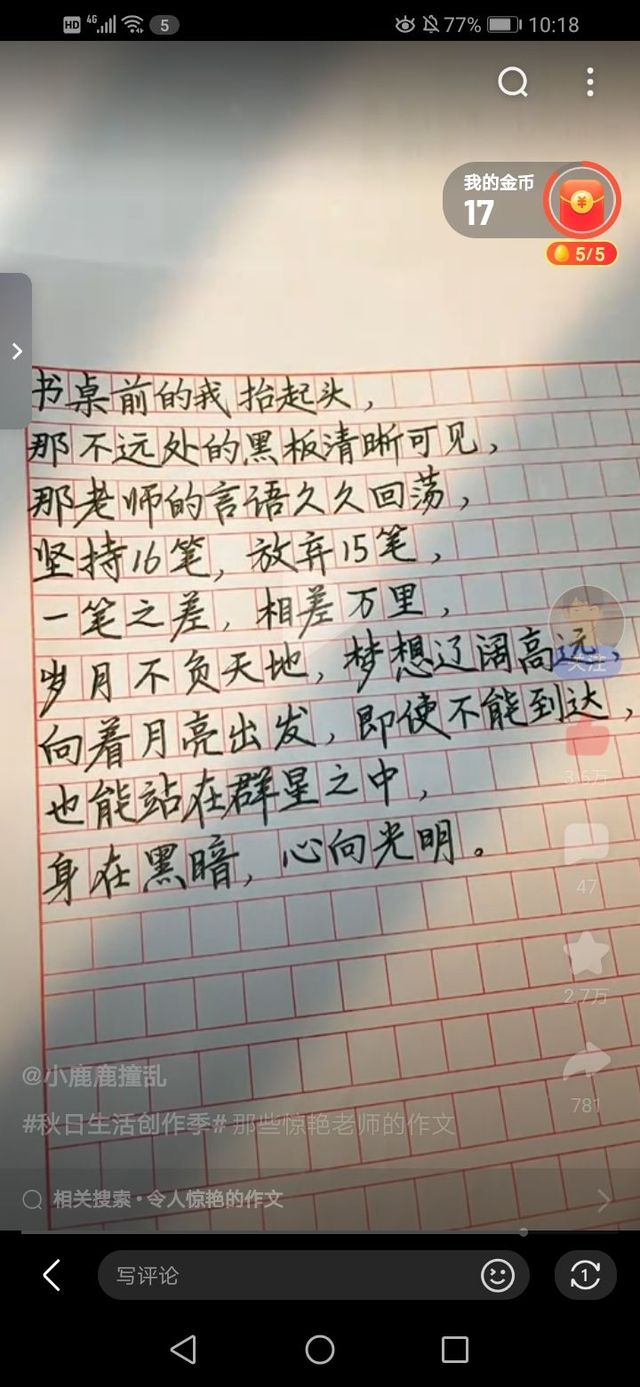 HD 4G 5 77% 10:18
我的金币
17
5/5
书桌前的我抬起头，
那不远处的黑板清晰可见，
那老师的言语久久回荡，
坚持16笔，放弃15笔，
一笔之差，相差万里，
岁月不负天地，梦想辽阔高远，
向着月亮出发，即使不能到达，
也能站在群星之中，
身在黑暗，心向光明。
关注
3.6万
47
2.7万
781
@小鹿鹿撞乱
#秋日生活创作季#那些惊艳老师的作文
相关搜索·令人惊艳的作文
写评论
1